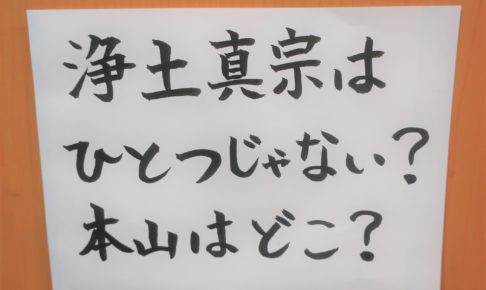 浄土真宗は
ひとつじゃない?
本山はどこ?